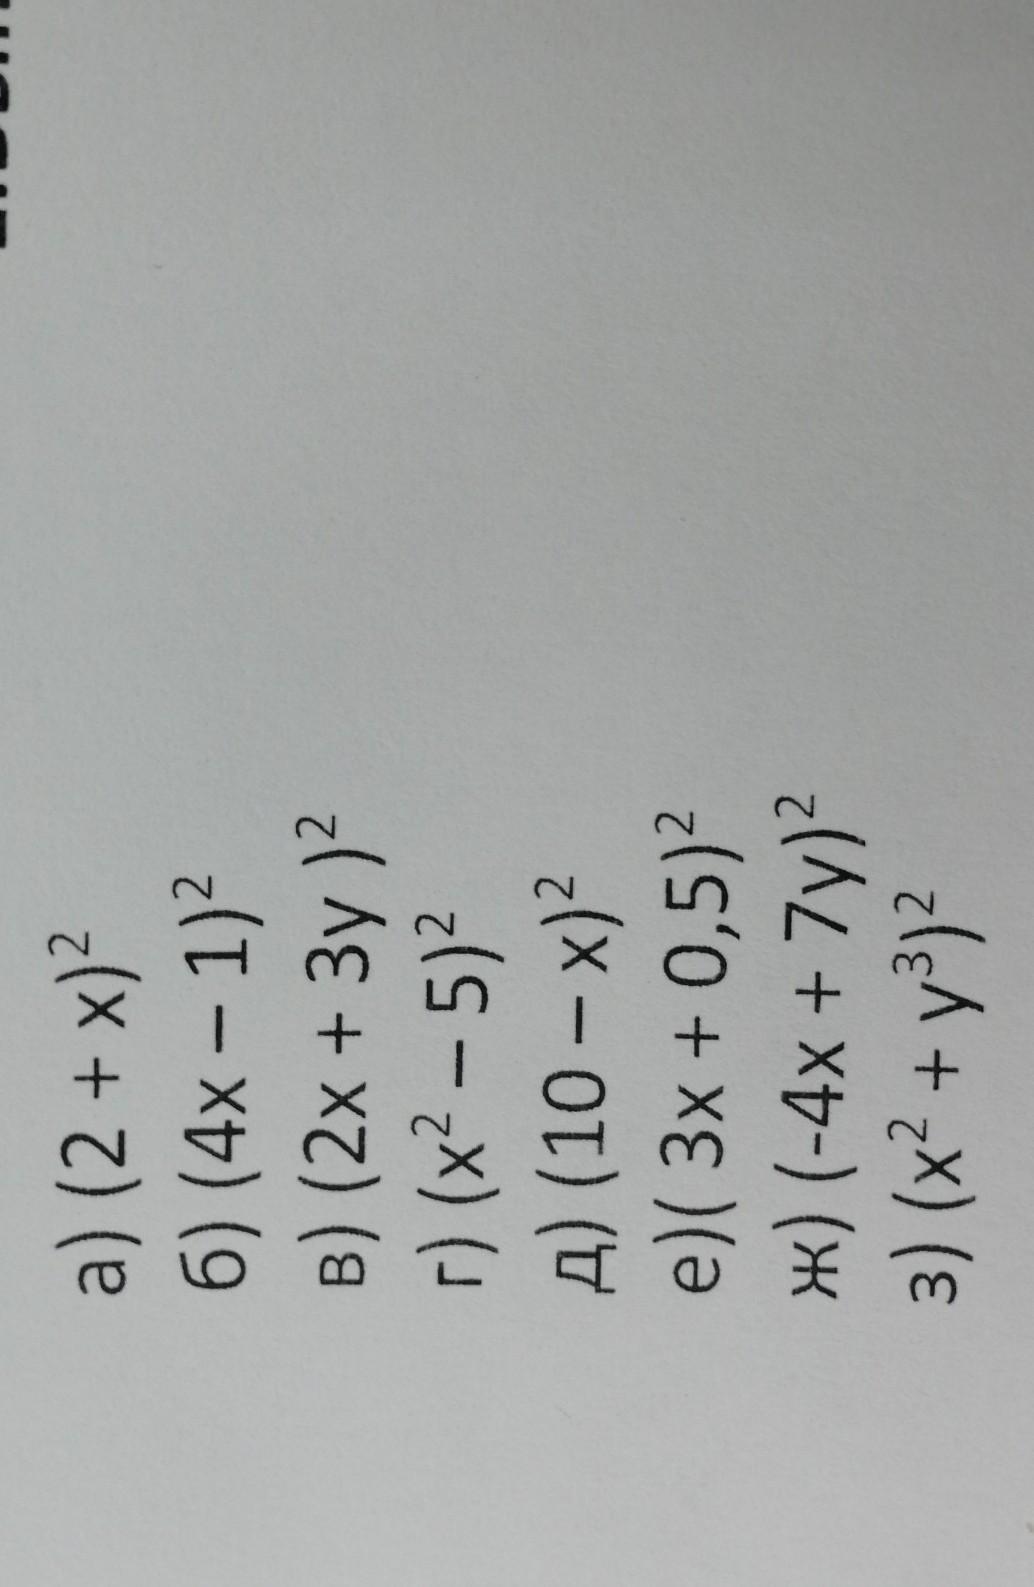 а) (2 + x)²
б) (4x – 1)²
в) (2x + 3y )²
г) (x² – 5)²
д) (10 – x)²
е)( 3x + 0,5)²
ж) (-4x + 7y)²
з) (x² + y³)²